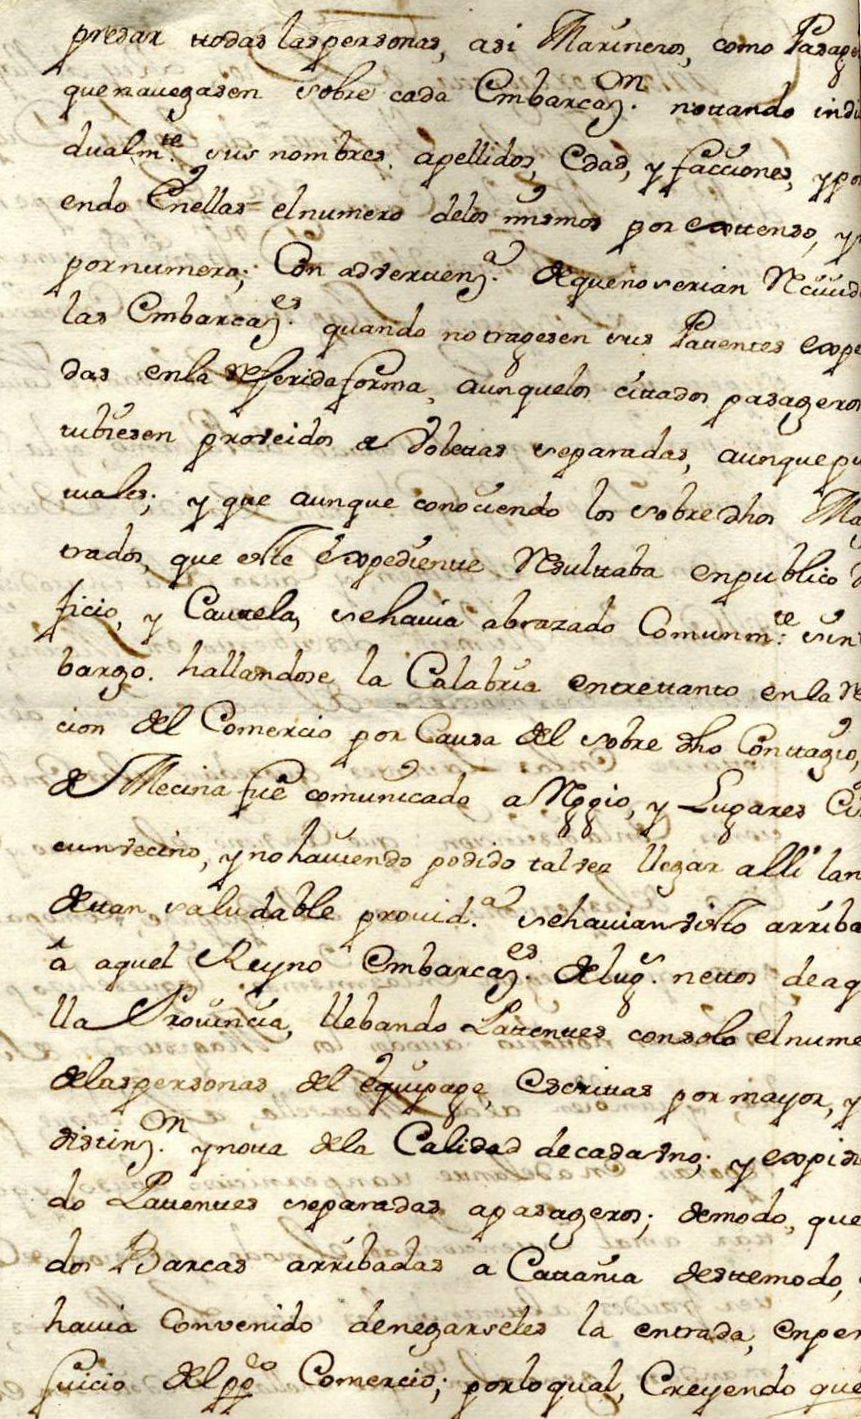 presar ttodas las personas, asi Marineros, como Pasage
que navegasen sobre cada Embarcaz.on nottando indi
dualm.te sus nombres, apellidos, Edad, y facciones, y po
endo Enellas = el numero delos mismos por exttenso, y
por numero; Con adverttenz.a de que no serian Recivid
las Embarcaz.es quando no tragesen sus Pattentes expe
das enla referida forma, aunquelos cittados pasageros
tubiesen proveidos a Volettas separadas, aunque pu
tuales; y que aunque conociendo los sobre dhos Ma
trados, que este expedientte Resulttaba enpublico
ficio, y Cautela, sehavia abrazado Comunm.te sin
bargo. hallandose la Calabria entrettanto en la Re
cion del Comercio por Causa del sobre dho Conttagio,
de Mecina fue comunicado a Reggio, y Lugares Cir
cunvecino, y no haviendo podido tal vez llegar alli la n
dettan saludable provid.a sehavian visto arriba
â aquel Reyno Embarcaz.es delug.s nettos de aq
lla Provincia, llebando Pattentes con solo el nume
delas personas del equipage, Escrittas por mayor, y
distinz.on y notta dela Calidad de cada Vno; y expidi
do Pattentes separadas a pasageros; demodo, que
dos Barcas arribadas a Cattania desttemodo,
havia Convenido denegarseles la entrada, enper
juicio del pp.co Comercio; por lo qual, Creyendo que